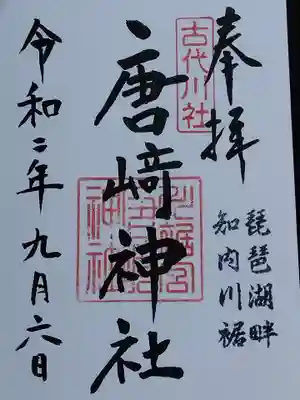 奉拝
琵琶湖畔
知内川裾
古代川社
唐崎神社
令和二年九月六日